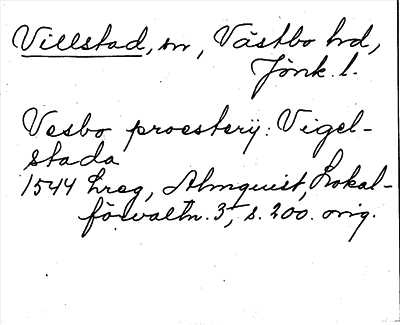 Villstad, sn, Västbo hd,
Jönk. l.
Vesbo proesterij: Vigel-
stada
1544 Lreg, Almquist, Lokal-
förvaltn. 3, s. 200. orig.